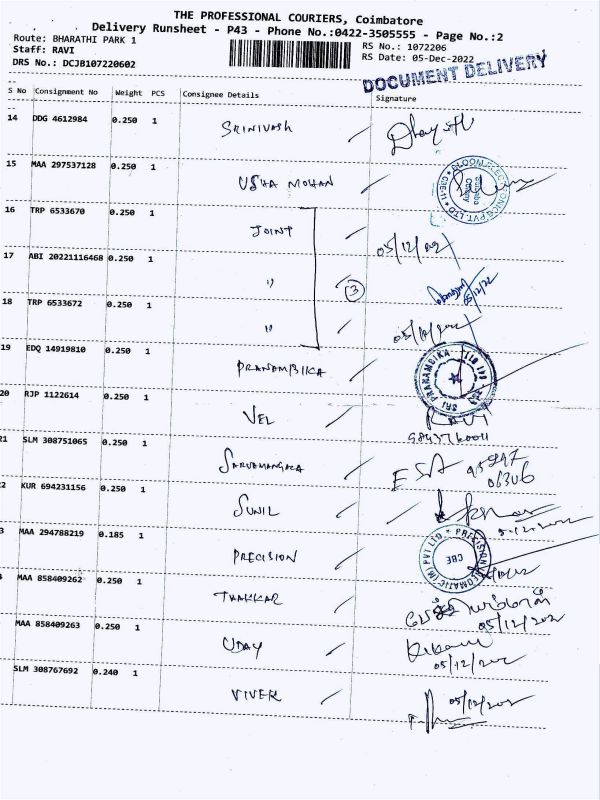 THE PROFESSIONAL COURIERS, Coimbatore
Delivery Runsheet - P43 - Phone No.:0422-3505555 - Page No.:2
Route: BHARATHI PARK 1
RS No.: 1072206
Staff: RAVI
RS Date: 05-Dec-2022
DRS No.: DCJB107220602
DOCUMENT DELIVERY
S No Consignment No Weight PCS Consignee Details Signature
14 DDG 4612984 0.250 1 SRINIVASH
15 MAA 297537128 0.250 1 USHA MOHAN
16 TRP 6533670 0.250 1 JOINT 05/12/22
17 ABI 20221116468 0.250 1 " 3 05/12/22
18 TRP 6533672 0.250 1 " 05/12/2022
19 EDQ 14919810 0.250 1 PRANAMBIKA SRI PRANAMBIKA
20 RJP 1122614 0.250 1 VEL RAVI
21 SLM 308751065 0.250 1 SARVAMANGALA ESA
2 KUR 694231156 0.250 1 SUNIL
3 MAA 294788219 0.185 1 PRECISION PRECISION (M) PVT LTD CBE
MAA 858409262 0.250 1 THAKKAR
05/12/202
MAA 858409263 0.250 1 UDAY
05/12/202
SLM 308767692 0.240 1 VIVEK 05/12/202